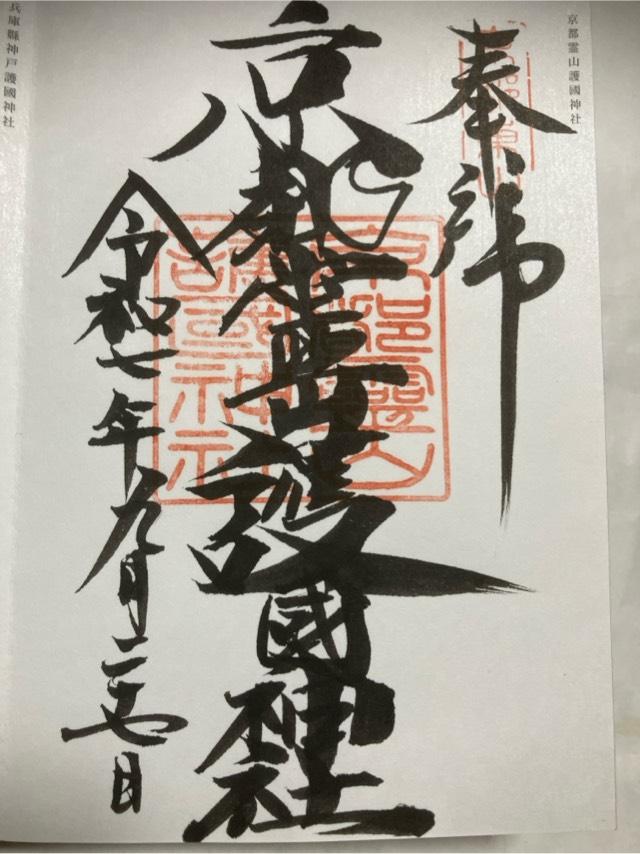 京都霊山護國神社
奉拝
京都霊山護國神社
令和七年九月二十七日
兵庫縣神戸護國神社